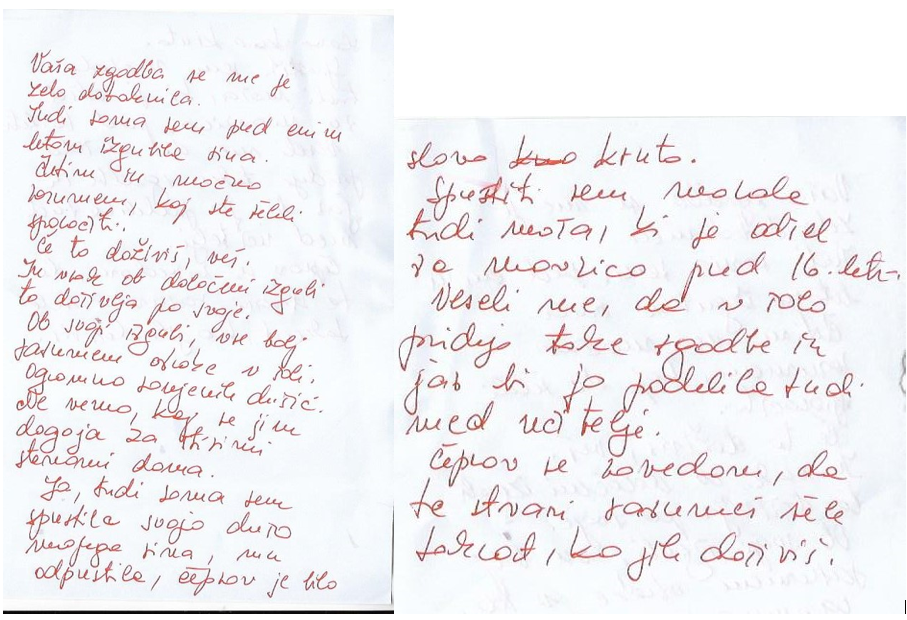 Vaša zgodba se me je
zelo dotaknila.
Tudi sama sem pred enim
letom izgubila sina.
Čutim in močno
razumem, kaj ste želeli
sporočiti.
Če to doživiš, veš.
In vsak ob določeni izgubi
to doživlja po svoje.
Ob svoji izgubi, vse bolj
razumem otroke v šoli.
Ogromno ranjenih dušic.
Ne vemo, kaj se jim
dogaja za štirimi
stenami doma.
Ja, tudi sama sem
spustila svojo dušo
mojega sina, mu
odpustila, čeprav je bilo
slovo kruto.
Spustiti sem morala
tudi moža, ki je odšel
za mavrico pred 16. leti.
Veseli me, da v šolo
pridejo take zgodbe in
jaz bi jo podelila tudi
med učitelje.
Čeprav se zavedam, da
te stvari razumeš šele
takrat, ko jih doživiš.